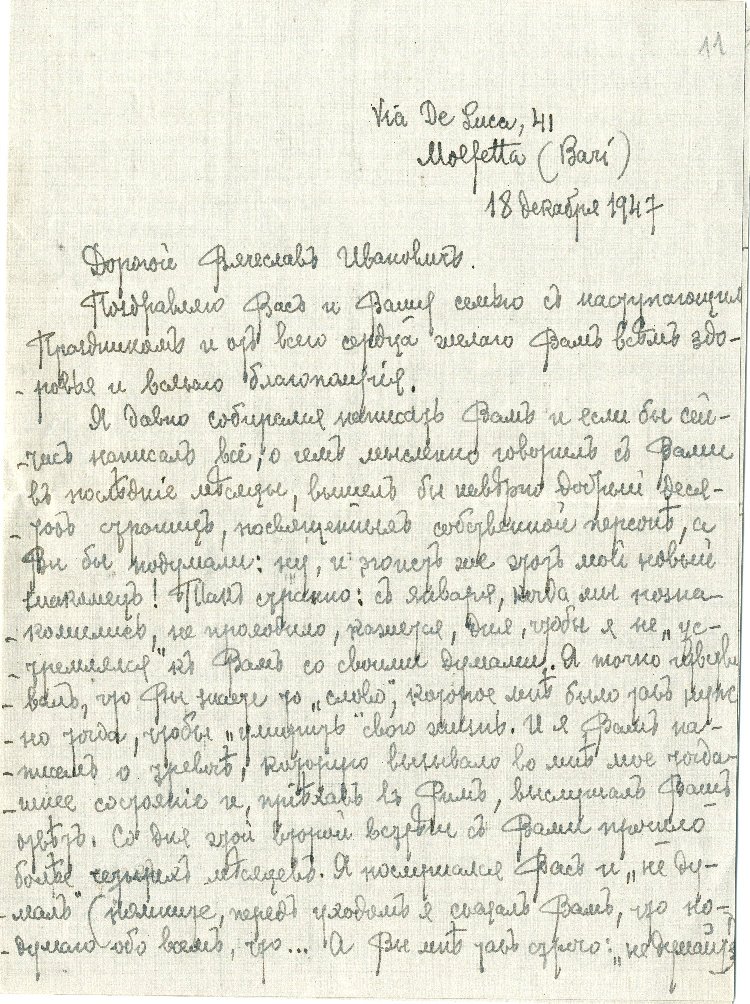 11
Via De Luca, 41
Molfetta (Bari)
18 декабря 1947
Дорогой Вячеславъ Ивановичъ.
Поздравляю Васъ и Вашу семью съ наступающимъ
Праздникомъ и отъ всего сердца желаю Вамъ всѣмъ здо-
ровья и всякаго благополучія.
Я давно собирался написать Вамъ и если бы сей-
-часъ написалъ всё, о чемъ мысленно говорилъ съ Вами
въ послѣдніе мѣсяцы, вышелъ бы навѣрно добрый деся-
-токъ страницъ, посвященныхъ собственной персонѣ, а
Вы бы подумали: ну, и эгоистъ же этотъ мой новый
знакомецъ! Такъ странно: съ января, когда мы позна-
-комились, не проходило, кажется, дня, чтобы я не „ус-
-тремлялся" къ Вамъ со своими думами. Я точно
-валъ, что Вы знаете то „слово", которое мнѣ было такъ нуж-
-но тогда, чтобы „умирить" свою жизнь. И я Вамъ на-
-писалъ о тревогѣ, которую вызывало во мнѣ мое тогда-
-шнее состояніе и, пріѣхавъ въ Римъ, выслушалъ Вашъ
отвѣтъ. Со дня этой второй встрѣчи съ Вами прошло
болѣе четырехъ мѣсяцевъ. Я послушался Васъ и „не ду-
-малъ" (помните, передъ уходомъ я сказалъ Вамъ, что по-
-думаю обо всемъ, что... А Вы мнѣ такъ строго: „не думайте